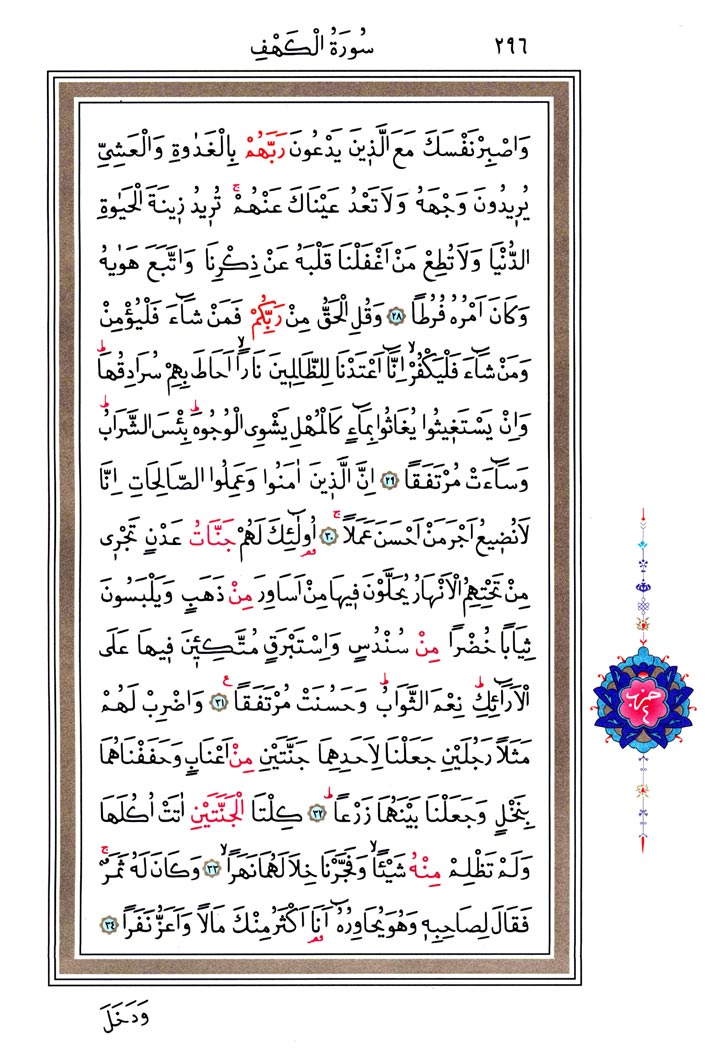 ٢٩٦
سُورَةُ الْكَهْفِ
وَاصْبِرْ نَفْسَكَ مَعَ الَّذ۪ينَ يَدْعُونَ رَبَّهُمْ بِالْغَدٰوةِ وَالْعَشِيِّ
يُر۪يدُونَ وَجْهَهُ وَلَا تَعْدُ عَيْنَاكَ عَنْهُمْۚ تُر۪يدُ ز۪ينَةَ الْحَيٰوةِ
الدُّنْيَا وَلَا تُطِعْ مَنْ اَغْفَلْنَا قَلْبَهُ عَنْ ذِكْرِنَا وَاتَّبَعَ هَوٰيهُ
وَكَانَ اَمْرُهُ فُرُطًا ﴿٢٨﴾ وَقُلِ الْحَقُّ مِنْ رَبِّكُمْ فَمَنْ شَٓاءَ فَلْيُؤْمِنْ
وَمَنْ شَٓاءَ فَلْيَكْفُرْۙ اِنَّٓا اَعْتَدْنَا لِلظَّالِم۪ينَ نَارًاۙ اَحَاطَ بِهِمْ سُرَادِقُهَاۜ
وَاِنْ يَسْتَغ۪يثُوا يُغَاثُوا بِمَٓاءٍ كَالْمُهْلِ يَشْوِي الْوُجُوهَۜ بِئْسَ الشَّرَابُۜ
وَسَٓاءَتْ مُرْتَفَقًا ﴿٢٩﴾ اِنَّ الَّذ۪ينَ اٰمَنُوا وَعَمِلُوا الصَّالِحَاتِ اِنَّا
لَا نُض۪يعُ اَجْرَ مَنْ اَحْسَنَ عَمَلًاۚ ﴿٣٠﴾ اُو۬لٰٓئِكَ لَهُمْ جَنَّاتُ عَدْنٍ تَجْر۪ي
مِنْ تَحْتِهِمُ الْاَنْهَارُ يُحَلَّوْنَ ف۪يهَا مِنْ اَسَاوِرَ مِنْ ذَهَبٍ وَيَلْبَسُونَ
ثِيَابًا خُضْرًا مِنْ سُنْدُسٍ وَاِسْتَبْرَقٍ مُتَّكِـ۪ٔينَ ف۪يهَا عَلَى
الْاَرَٓائِكِۜ نِعْمَ الثَّوَابُۜ وَحَسُنَتْ مُرْتَفَقًا۟ ﴿٣١﴾ وَاضْرِبْ لَهُمْ
مَثَلًا رَجُلَيْنِ جَعَلْنَا لِاَحَدِهِمَا جَنَّتَيْنِ مِنْ اَعْنَابٍ وَحَفَفْنَاهُمَا
بِنَخْلٍ وَجَعَلْنَا بَيْنَهُمَا زَرْعًاۜ ﴿٣٢﴾ كِلْتَا الْجَنَّتَيْنِ اٰتَتْ اُكُلَهَا
وَلَمْ تَظْلِمْ مِنْهُ شَيْـًٔاۙ وَفَجَّرْنَا خِلَالَهُمَا نَهَرًاۙ ﴿٣٣﴾ وَكَانَ لَهُ ثَمَرٌۚ
فَقَالَ لِصَاحِبِه۪ وَهُوَ يُحَاوِرُهُٓ اَنَا۬ اَكْثَرُ مِنْكَ مَالًا وَاَعَزُّ نَفَرًا ﴿٣٤﴾
حزب
٤
وَدَخَلَ